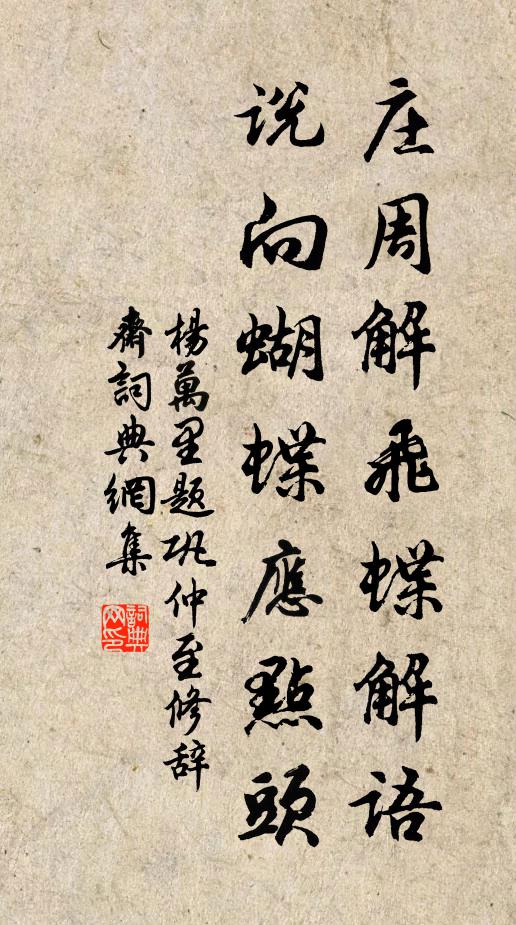 庄周解飛蝶解語
説向蝴蝶應點頭
楊萬里題巩仲至修辞
齋詞典網集
詞典网印